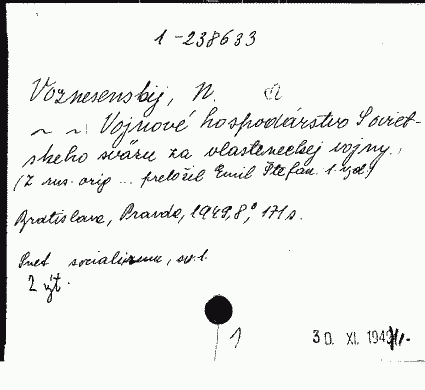 1-238633
Voznesenskij, N.
~ ~ : Vojnové hospodárstvo Soviet-
skeho sväzu za vlasteneckej vojny.
(Z rus. orig ... preložil Emil Štefan. 1. vyd.)
Bratislava, Pravda, 1949, 8°, 171 s.
Svet socializmu, sv. 1.
2 výt.
1
30. XI. 1949